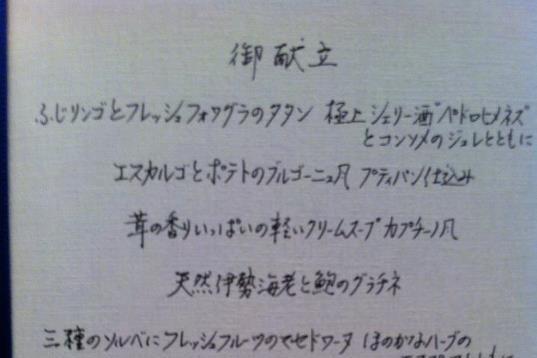 御献立
ふじリンゴとフレッシュフォワグラのタタン 極上シェリー酒"ペドロヒメネズ"
とコンソメのジュレとともに
エスカルゴとポテトのブルゴーニュ風 プティパン仕込み
茸の香りいっぱいの軽いクリームスープ カプチーノ風
天然伊勢海老と鮑のグラチネ
三種のソルベにフレッシュフルーツのマセドワーヌ ほのかなハーブの